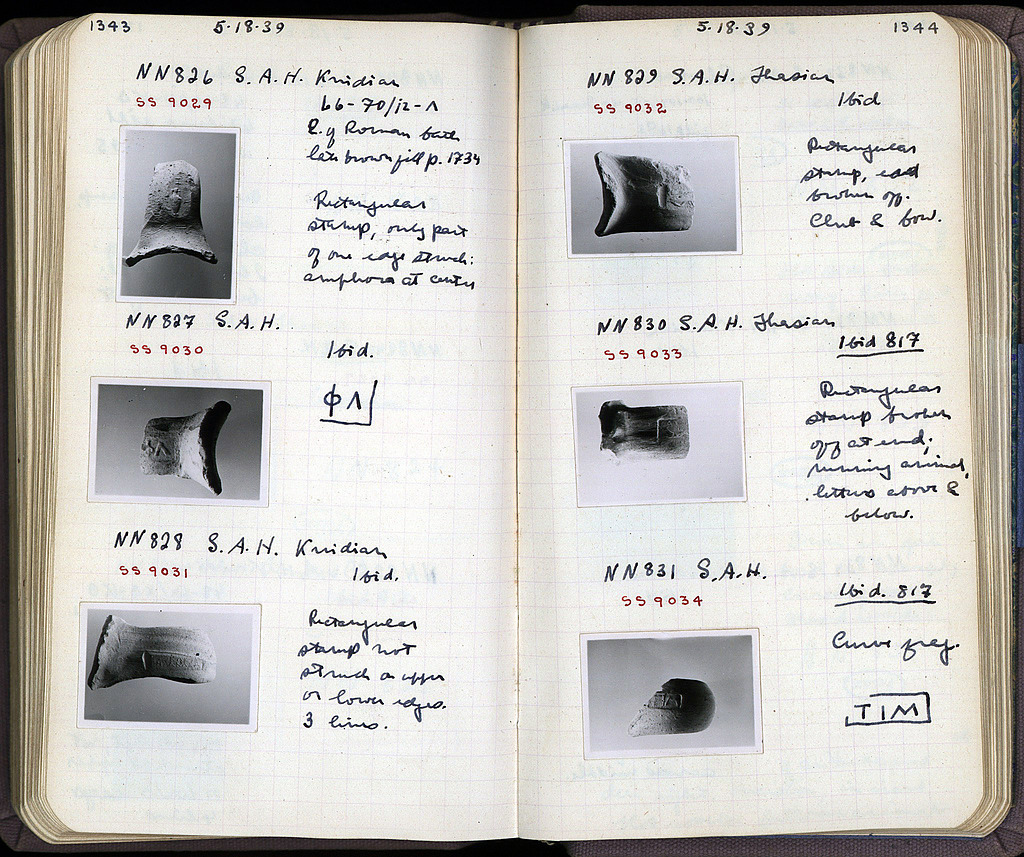 1343
5·18·39
NN826 S.A.H. Knidian
SS 9029
66-70/ΙΣ-Λ
E. of Roman bath
late brown fill p. 1734
Rectangular
stamp, only part
of one edge struck:
amphora at center
NN827 S.A.H.
SS 9030
Ibid.
ΦΛ
NN828 S.A.H. Knidian
SS 9031
Ibid.
Rectangular
stamp not
struck on upper
or lower edges.
3 lines.
5·18·39
1344
NN829 S.A.H. Thasian
SS 9032
Ibid
Rectangular
stamp, end
broken off.
Club & bow.
NN830 S.A.H. Thasian
SS 9033
Ibid 817
Rectangular
stamp broken
off at end;
running animal,
letters above &
below.
NN831 S.A.H.
SS 9034
Ibid. 817
Curve frag.
ΤΙΜ